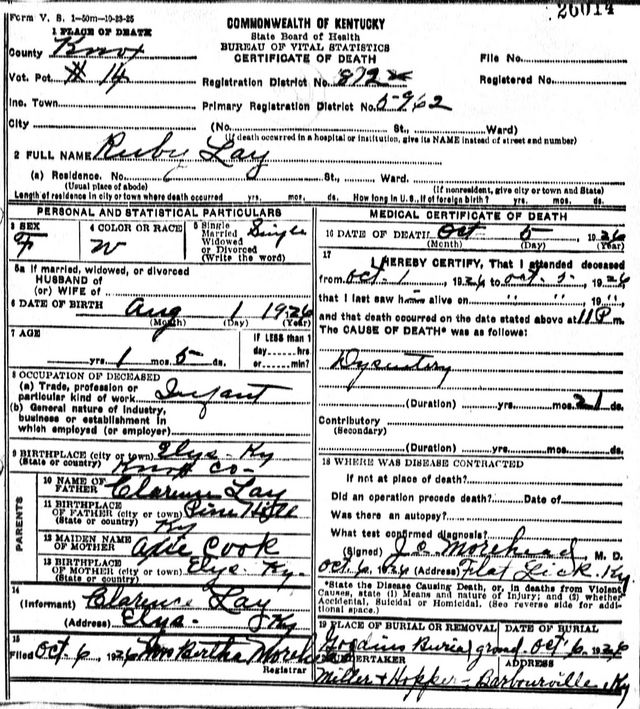 26014
Form V. S. 1-50m-10-23-25
COMMONWEALTH OF KENTUCKY
State Board of Health
BUREAU OF VITAL STATISTICS
CERTIFICATE OF DEATH
1 PLACE OF DEATH
County Knox
File No.
Vot. Pct. # 14
Registration District No. 872
Registered No.
Inc. Town
Primary Registration District No. 5962
City (No. St., Ward)
(If death occurred in a hospital or institution, give its NAME instead of street and number)
2 FULL NAME Ruby Lay
(a) Residence. No. St., Ward.
(Usual place of abode) (If nonresident, give city or town and State)
Length of residence in city or town where death occurred yrs. mos. ds. How long in U. S., if of foreign birth? yrs. mos. ds.
PERSONAL AND STATISTICAL PARTICULARS
3 SEX F
4 COLOR OR RACE W
5 Single Married Widowed or Divorced (Write the word) Single
5a If married, widowed, or divorced
HUSBAND of
(or) WIFE of
6 DATE OF BIRTH Aug 1 1926
(Month) (Day) (Year)
7 AGE
yrs. 1 mos 5 ds.
IF LESS than 1
day hrs
or min?
8 OCCUPATION OF DECEASED
(a) Trade, profession or
particular kind of work Infant
(b) General nature of industry,
business or establishment in
which employed (or employer)
9 BIRTHPLACE (city or town) Elys - Ky
(State or country) Knox Co -
PARENTS
10 NAME OF
FATHER Clarence Lay
11 BIRTHPLACE
OF FATHER (city or town) Pine Hill
(State or country) Ky
12 MAIDEN NAME
OF MOTHER Cook
13 BIRTHPLACE
OF MOTHER (city or town) Elys. Ky.
(State or country)
14
(Informant) Clarence Lay
(Address) Elys - Ky
15
Filed Oct 6, 1926 Mrs Bertha Morehead
Registrar
MEDICAL CERTIFICATE OF DEATH
16 DATE OF DEATH Oct 5 1926
(Month) (Day) (Year)
17
I HEREBY CERTIFY, That I attended deceased
from Oct 1, 1926 to Oct 5, 1926
that I last saw h alive on " " , 19",
and that death occurred on the date stated above at 11 P m.
The CAUSE OF DEATH* was as follows:
Dysentery
(Duration) yrs. mos. 21 ds.
Contributory
(Secondary)
(Duration) yrs. mos. ds.
18 WHERE WAS DISEASE CONTRACTED
If not at place of death?
Did an operation precede death? Date of
Was there an autopsy?
What test confirmed diagnosis?
(Signed) J. C. Morehead, M. D.
Oct 6, 1926 (Address) Flat Lick, Ky.
*State the Disease Causing Death, or, in deaths from Violent
Causes, state (1) Means and nature of Injury; and (2) Whether
Accidental, Suicidal or Homicidal. (See reverse side for addi-
tional space.)
19 PLACE OF BURIAL OR REMOVAL DATE OF BURIAL
Burial ground. Oct 6, 1926
20 UNDERTAKER ADDRESS
Miller & Hopper - Barbourville, Ky